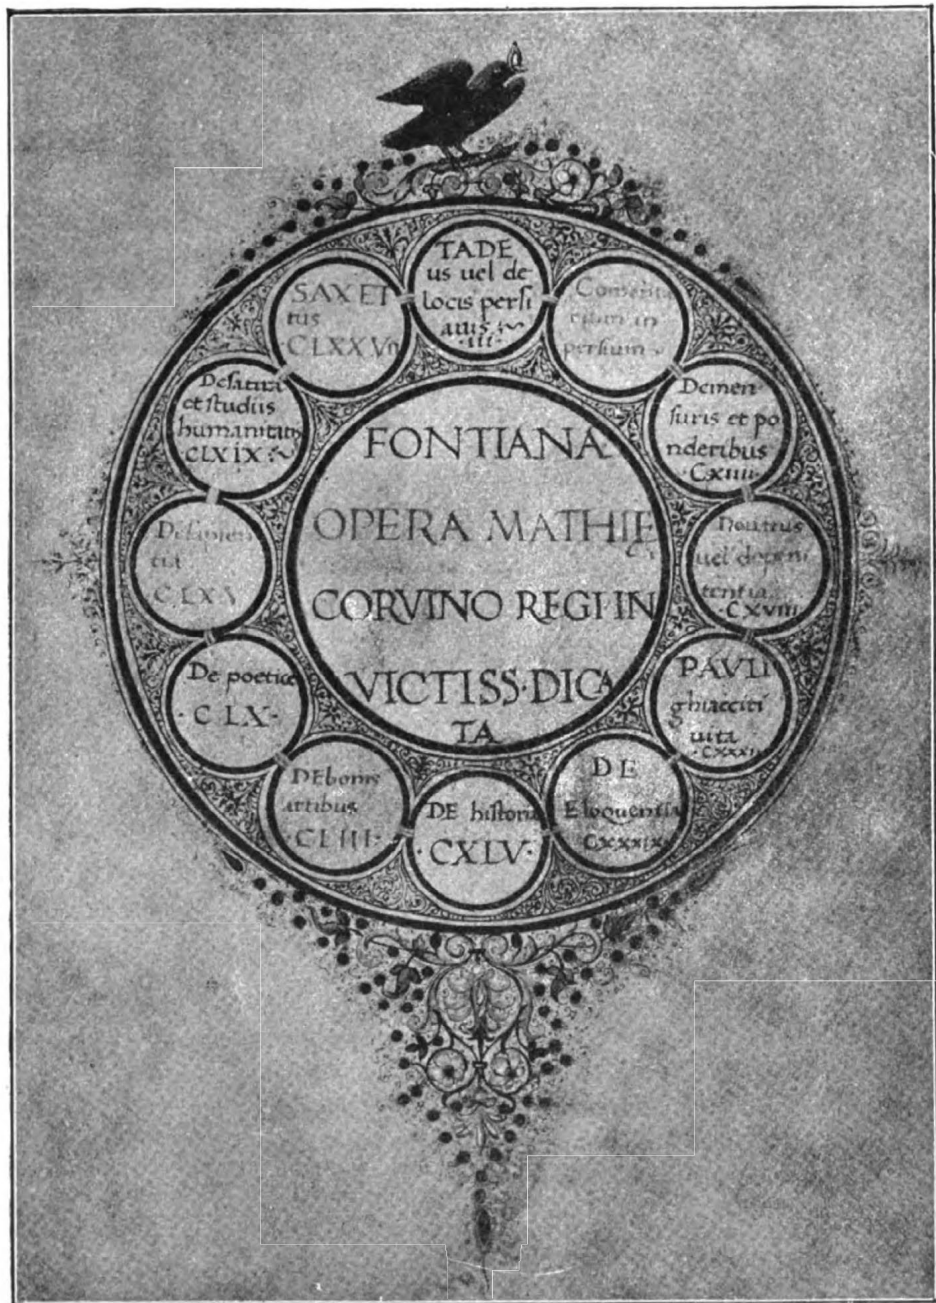 FONTIANA
OPERA MATHIĘ
CORVINO REGI IN
VICTISS·DICA
TA
TADE
us uel de
locis persi
anis
·III·
Comenta
rium in
persium
Demen
suris et po
nderibus
·CXIIII·
uel depeni
tentia
·CXVIII·
PAVLI
ghiacceti
uita
DE
Eloquentia
CXXXIX
DE historia
·CXLV·
DEbonis
artibus
·CLIII·
De poetice
·CLX·
Desapien
tia
CLXV
Desatira
et studiis
humanitatis
CLXIX
SAXET
tus